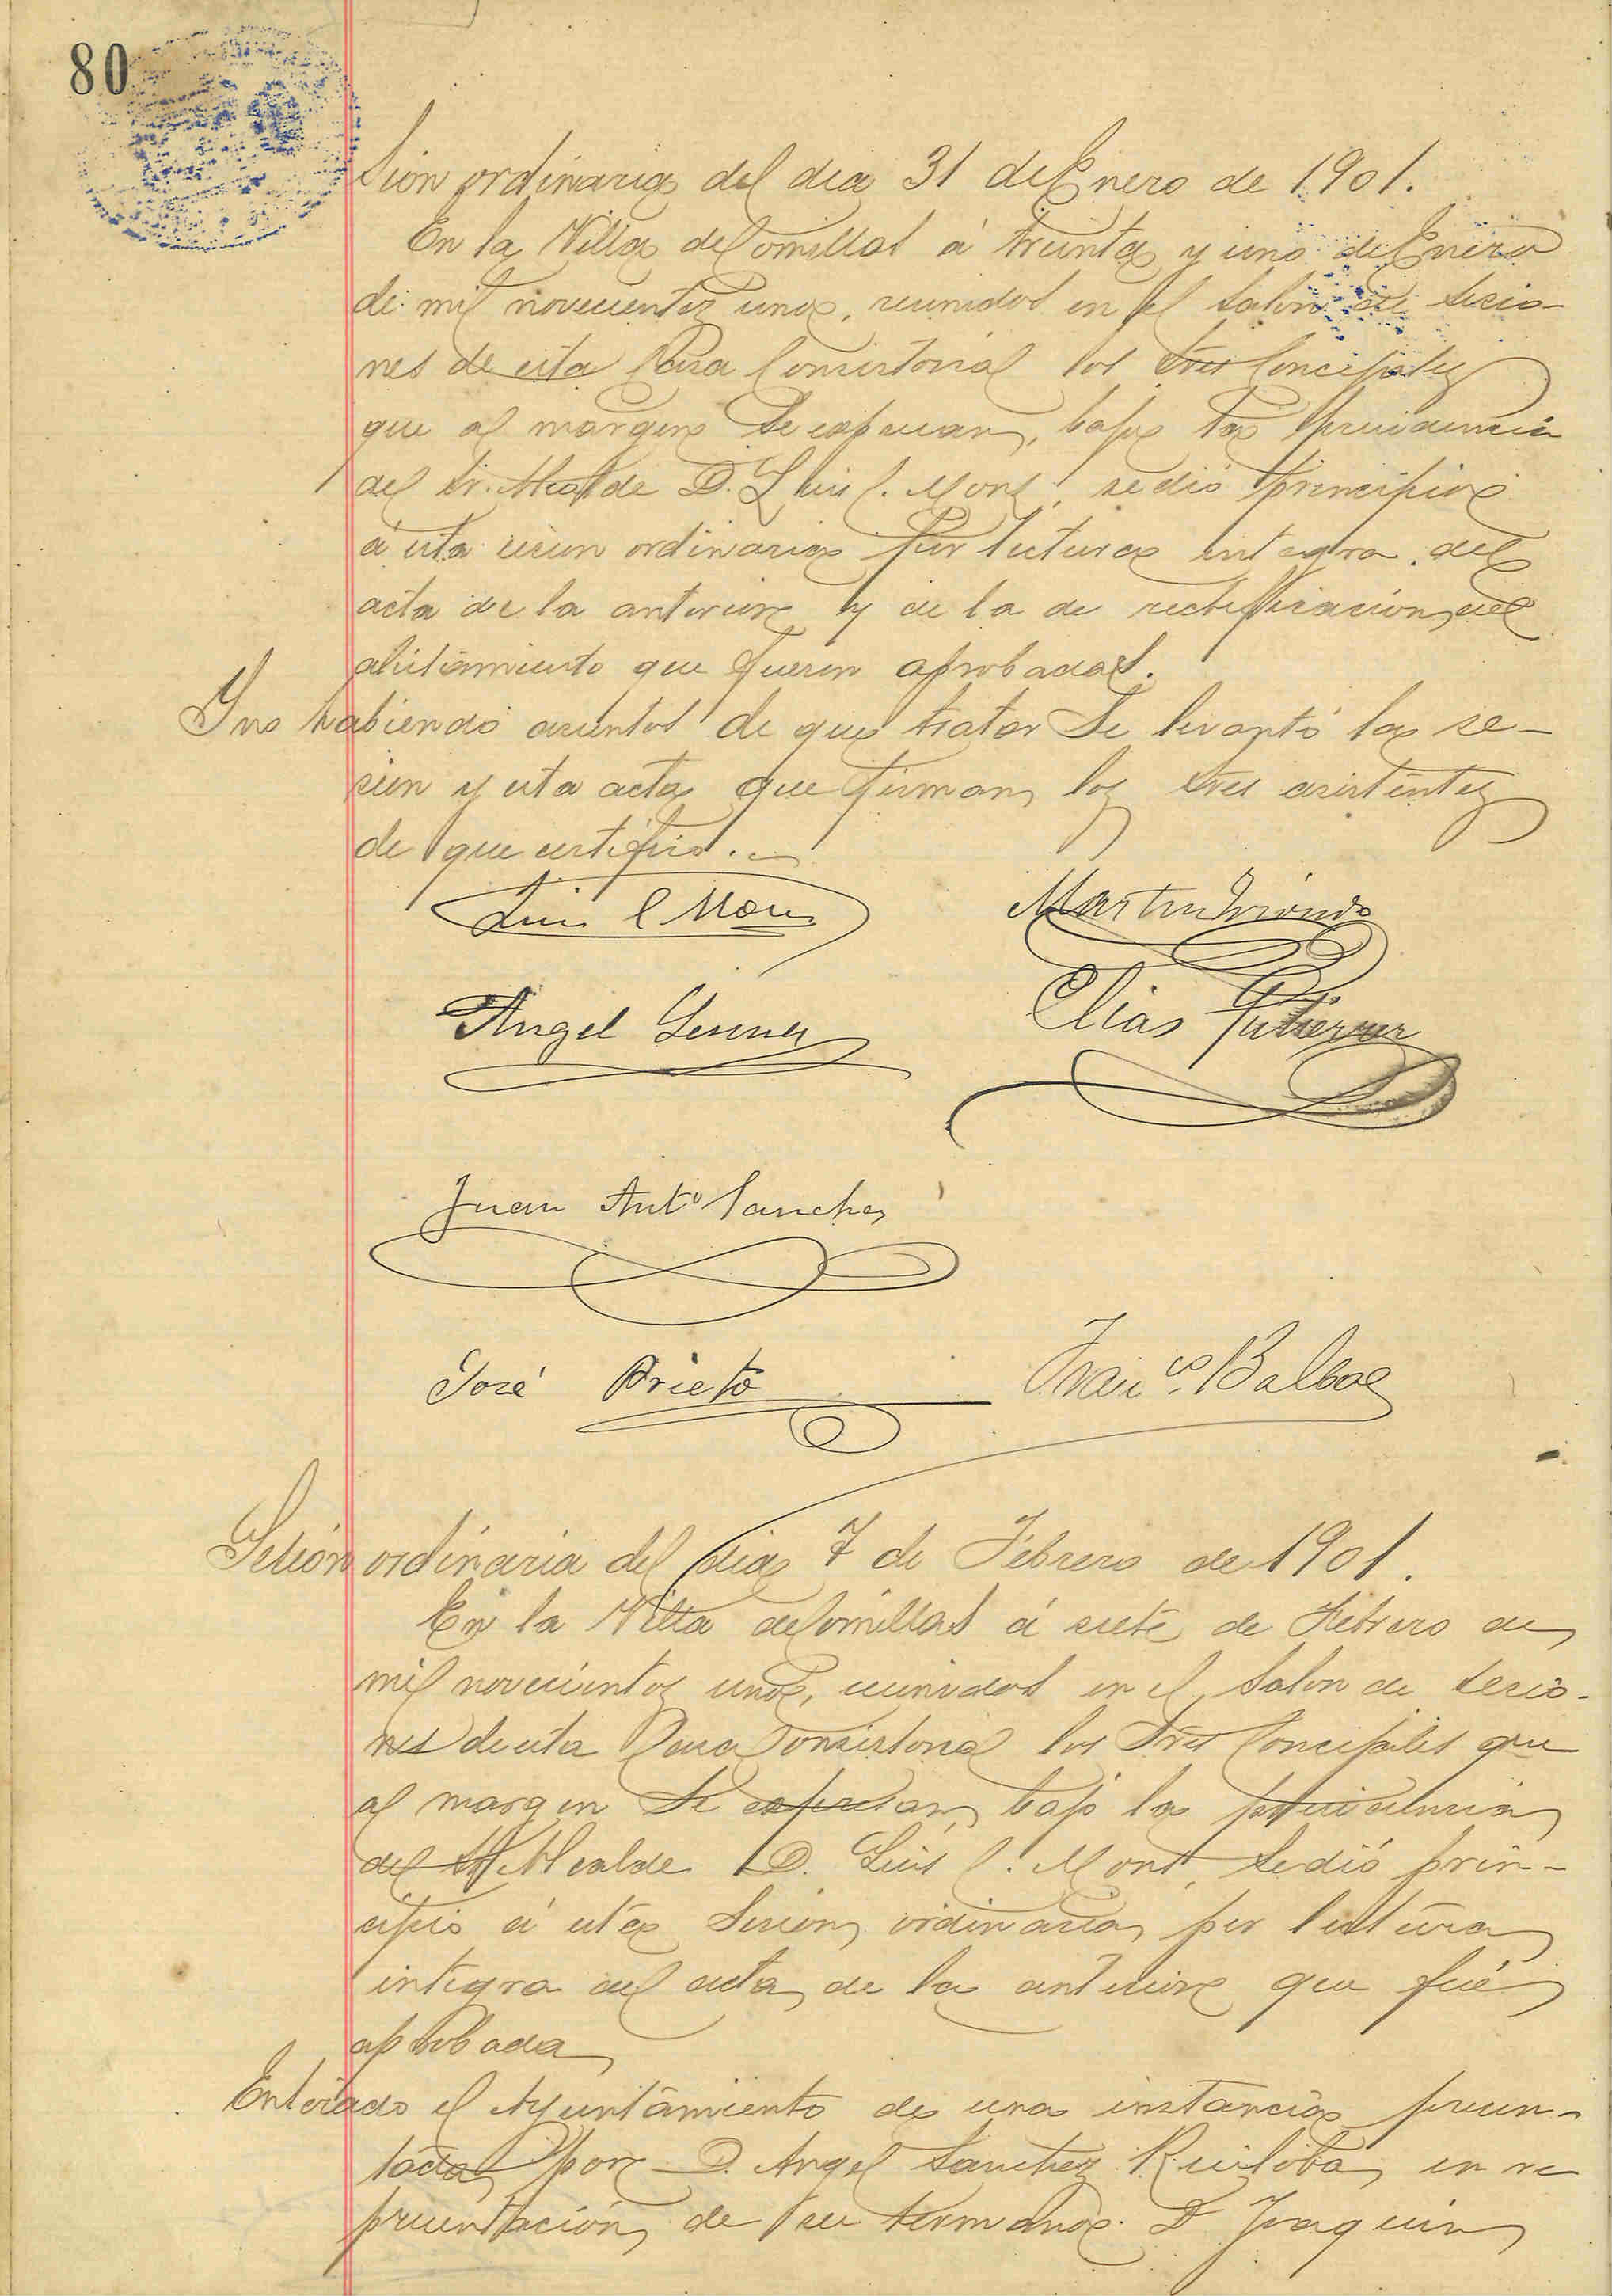 80
sion ordinaria del dia 31 de Enero de 1901.
En la Villa de Comillas á treinta y uno de Enero
de mil novecientos uno, reunidos en el salon de sesio-
nes de esta Casa Consistorial los Sres Concejales
que al margen se expresan, bajo la presidencia
del Sr. Alcalde D. Luis C. Mons, se dió principio
á esta sesion ordinaria por lectura integra del
acta de la anterior y de la de rectificacion del
alistamiento que fueron aprobadas.
Y no habiendo asuntos de que tratar se levantó la se-
sion y esta acta que firman los Sres asistentes
de que certifico.
Luis C Mons
Martin
Angel
Elias Gutierrez
Juan Antº Sanchez
José Prieto
Franco. Balboa
Sesión ordinaria del dia 7 de Febrero de 1901.
En la Villa de Comillas á siete de Febrero de
mil novecientos uno, reunidos en el salon de sesio-
nes de esta Casa Consistorial los Sres Concejales que
al margen se expresan, bajo la presidencia
del Sr Alcalde D. Luis C. Mons, se dió prin-
cipio á esta sesion ordinaria por lectura
integra del acta de la anterior que fué
aprobada
Enterado el Ayuntamiento de una instancia presen-
tada por D. Angel Sanchez Ruiloba, en re
presentación de su hermano D Joaquin